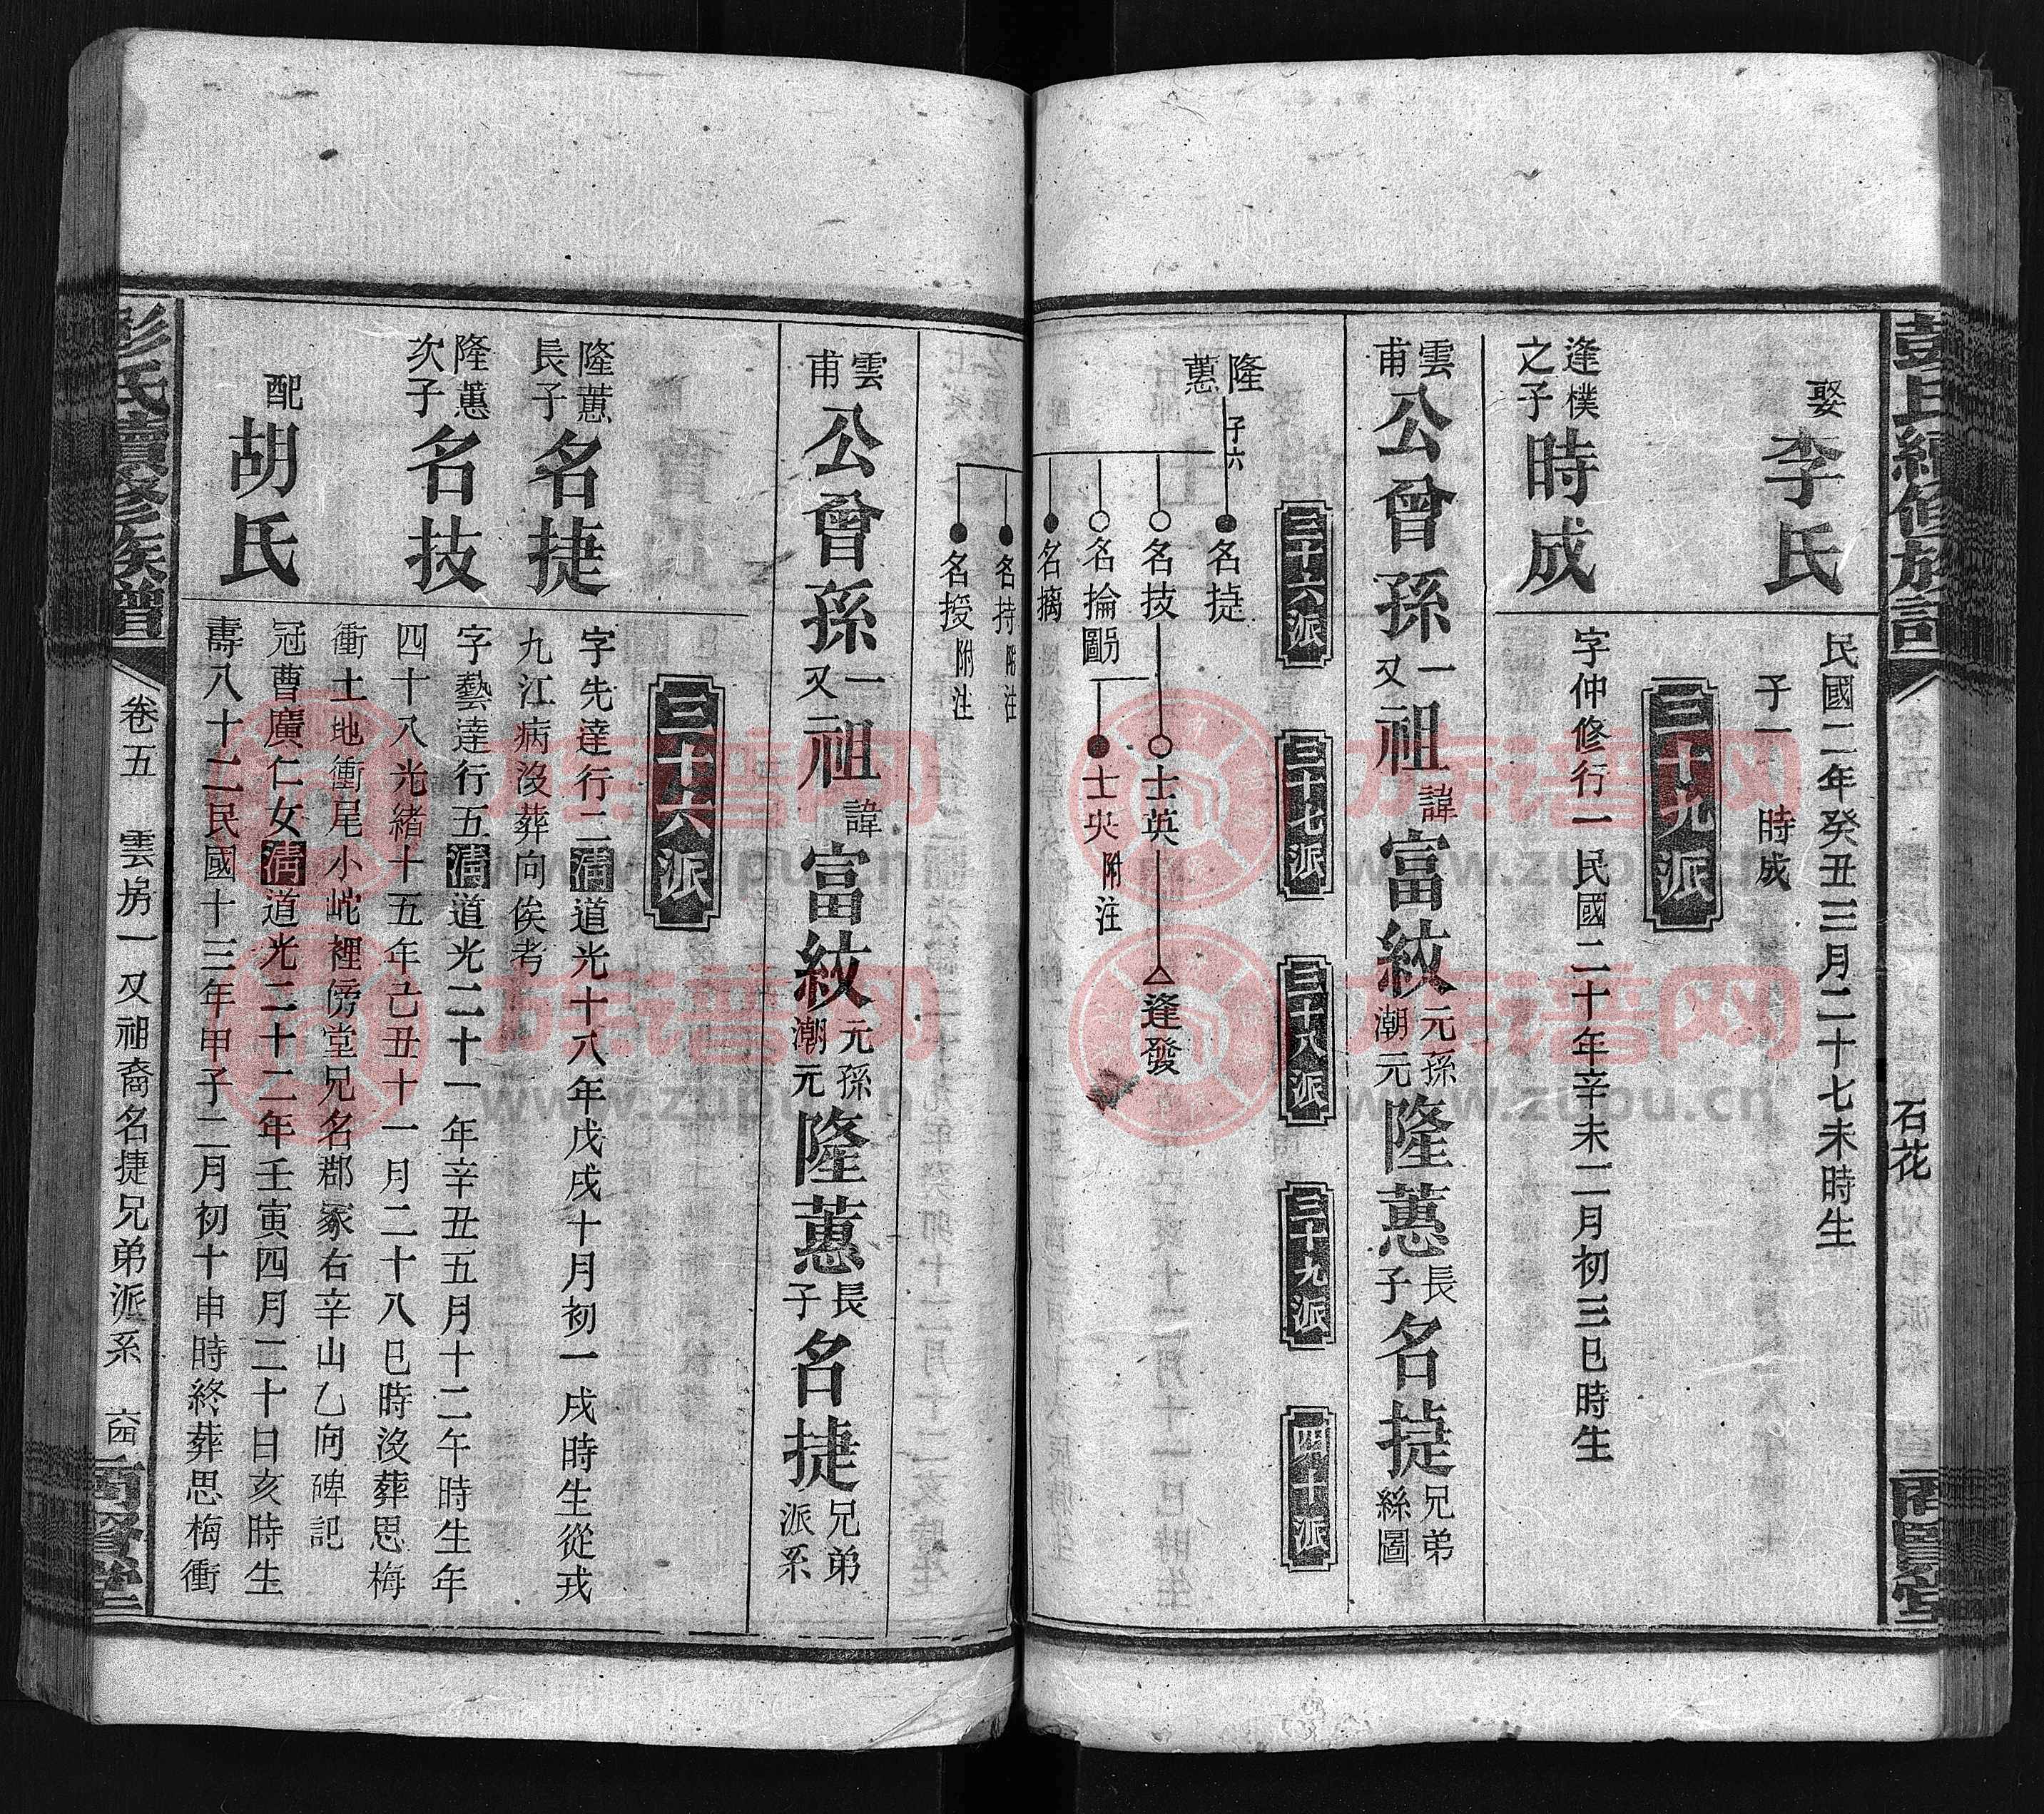 娶
李氏
民國二年癸丑三月二十七未時生
子一　時成
三十九派
逢樸之子
時成
字仲修行一民國二十年辛未二月初三巳時生
雲甫公曾孫一又祖諱富紋元孫潮元隆蕙長子名捷兄弟絲圖
三十六派
三十七派
三十八派
三十九派
四十派
隆蕙
子六
名捷
名技
士英
逢發
名掄
士央附注
名摛
名持附注
名授附注
石花
雲甫公曾孫一又元祖諱富紋元孫潮元隆蕙長子名捷兄弟派系
三十六派
隆蕙長子
名捷
字先達行二清道光十八年戊戌十月初一戌時生從戎
九江病沒葬向俟考
隆蕙次子
名技
字藝達行五清道光二十一年辛丑五月十二午時生年
四十八光緒十五年己丑十一月二十八巳時沒葬思梅
衝土地衝尾小屹裡傍堂兄名郡冢右辛山乙向碑記
配
胡氏
冠曹廣仁女清道光二十二年壬寅四月二十日亥時生
壽八十二民國十三年甲子二月初十申時終葬思梅衝
彭氏續修族譜
卷五　雲房一又祖裔名捷兄弟派系
族谱网
www.zupu.cn
族谱网
www.zupu.cn
族谱网
www.zupu.cn
族谱网
www.zupu.cn